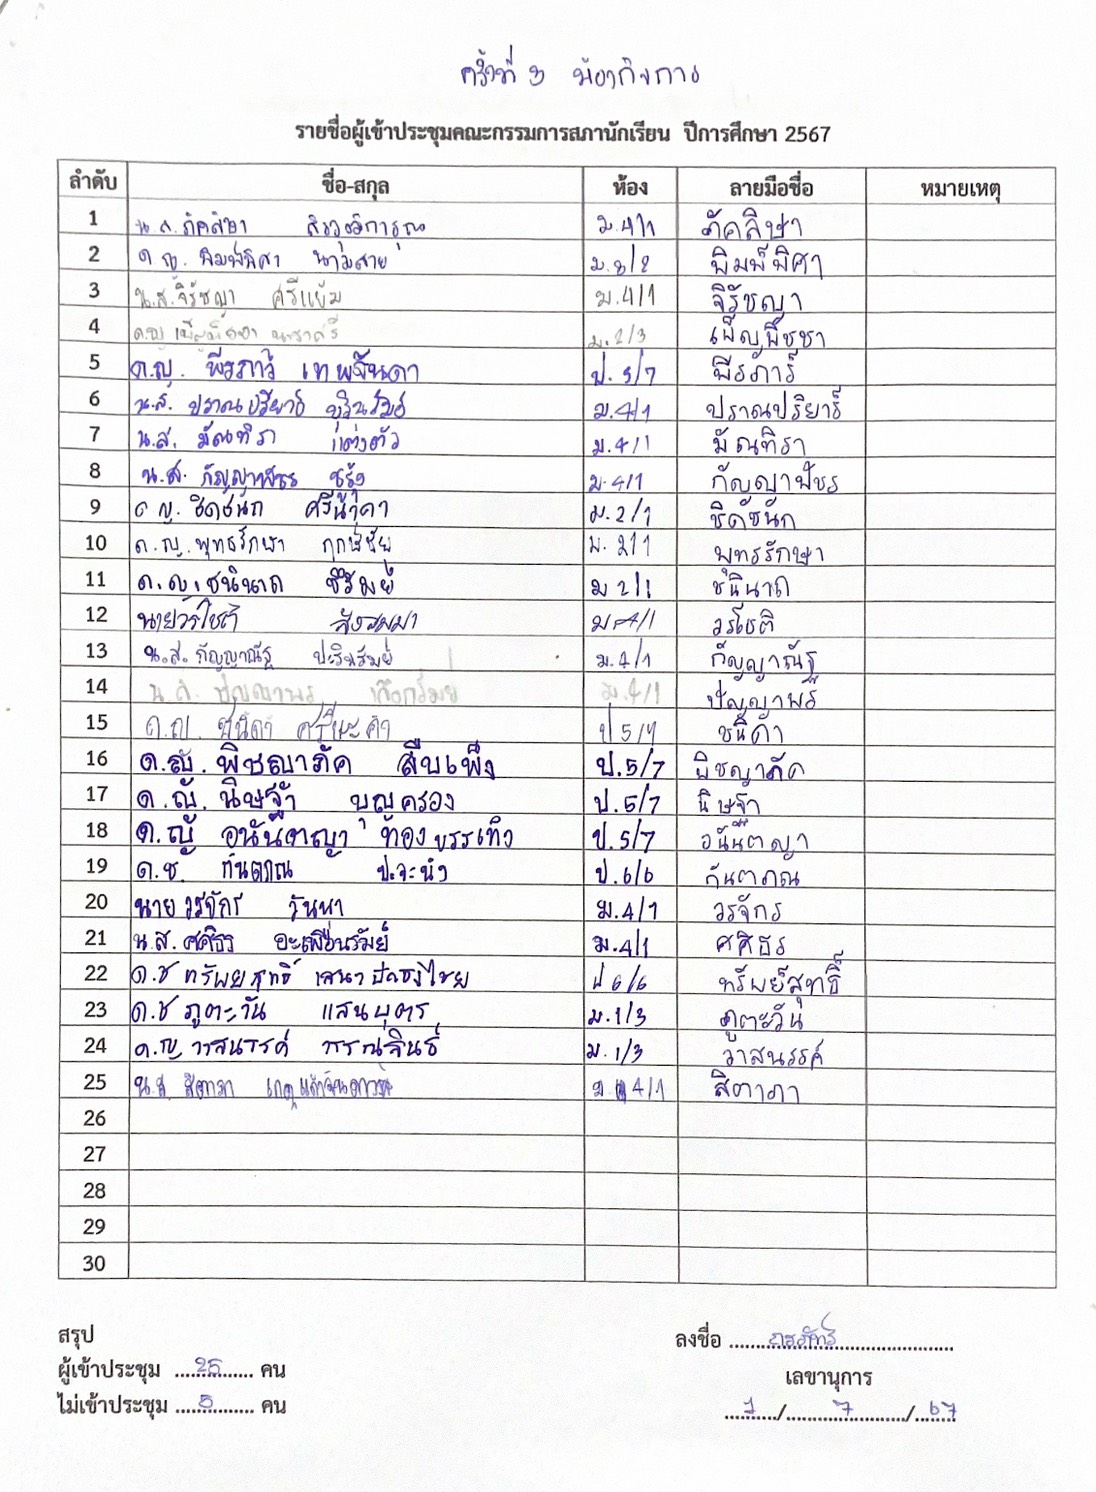 ครั้งที่ 3 ห้องกิจการ
รายชื่อผู้เข้าประชุมคณะกรรมการสภานักเรียน ปีการศึกษา 2567
ลำดับ ชื่อ-สกุล ห้อง ลายมือชื่อ หมายเหตุ
1 น.ส. ภัคลิษา ม.4/1 ภัคลิษา
2 ด.ญ. พิมพ์พิศา ม.3/2 พิมพ์พิศา
3 น.ส. จิรัชญา ศรีแย้ม ม.4/1 จิรัชญา
4 ด.ญ. เพ็ญพิชชา ม.2/3 เพ็ญพิชชา
5 ด.ญ. พีรภาร์ เทพจันดา ป.5/7 พีรภาร์
6 น.ส. ปราณปริยาร์ ม.4/1 ปราณปริยาร์
7 น.ส. มัณฑิรา แต่งตัว ม.4/1 มัณฑิรา
8 น.ส. กัญญาพัชร ม.4/1 กัญญาพัชร
9 ด.ญ. ชิดชนก ศรีน้ำคา ม.2/1 ชิดชนก
10 ด.ญ. พุทธรักษา ฤกษ์ชัย ม.2/1 พุทธรักษา
11 ด.ญ. ชนินาถ ม.2/1 ชนินาถ
12 นายวรโชติ ม.4/1 วรโชติ
13 น.ส. กัญญาณัฐ ม.4/1 กัญญาณัฐ
14 น.ส. ปุญญาพร ม.4/1 ปุญญาพร
15 ด.ญ. ชนิดา ป.5/7 ชนิดา
16 ด.ญ. พิชญาภัค สืบเพ็ง ป.5/7 พิชญาภัค
17 ด.ญ. นิษฐา บุญครอง ป.5/7 นิษฐา
18 ด.ญ. อนันตญา ท้องบรรเทิง ป.5/7 อนันตญา
19 ด.ช. กันตภณ ปะจะนัง ป.6/6 กันตภณ
20 นาย วรจักร วันนา ม.4/1 วรจักร
21 น.ส. ศศิธร ม.4/1 ศศิธร
22 ด.ช ทรัพย์สุทธิ์ ป 6/6 ทรัพย์สุทธิ์
23 ด.ช ภูตะวัน แสนบุตร ม.1/3 ภูตะวัน
24 ด.ญ. วาสนรรค์ วรรณสินธ์ ม.1/3 วาสนรรค์
25 น.ส. สิตาภา ม. 4/1 สิตาภา
26
27
28
29
30
สรุป
ลงชื่อ
ผู้เข้าประชุม 25 คน
เลขานุการ
ไม่เข้าประชุม 5 คน
1/7/67